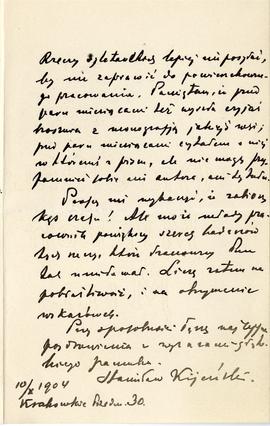 Rzeczy dotathową lepiej nie posyłać,
by nie zaprawić do powierzchowne-
go pracowania. Pamiętam, że przed
paru miesiącami też wyszła czyjaś
broszura z monografią jakiejś wsi;
przed paru miesiącami czytałem o niej
w którymś z pism, ale nie mogę przy-
pomnieć sobie ani autora, ani tytułu.
Proszę mi wybaczyć, że zabieram
czasu! Ale może młody pra-
cownik powiększy szereg badaczów
tych rzeczy, które Szanowny Pan
tak umiłował. Liczę zatem na
pobłażliwość, i na otrzymanie
wskazówek.
Przy sposobności łączę najżyczliwsze
pozdrowienia z wyrazami głębo-
kiego szacunku.
Stanisław
10/X 1904
Krakowskie Przedm. 30.